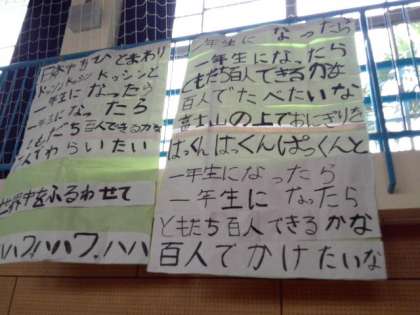 一年生になったら
一年生になったら
ともだち百人できるかな
百人でたべたいな
富士山の上でおにぎりを
ぱっくんぱっくんぱっくんと
一年生になったら
一年生になったら
ともだち百人できるかな
百人でかけたいな
日本中をひとまわり
ドッシンドッシンドッシンと
一年生になったら
一年生になったら
ともだち百人できるかな
人でわらいたい
世界中をふるわせて